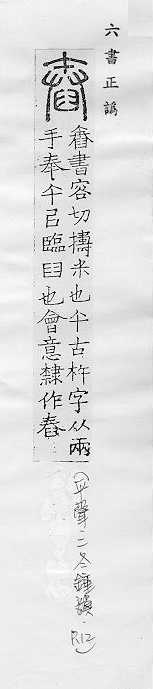 六書正譌
舂書容切擣米也午古杵字从兩
手奉午㠯臨臼也會意隸作舂
(平聲二冬鍾韻.R12)